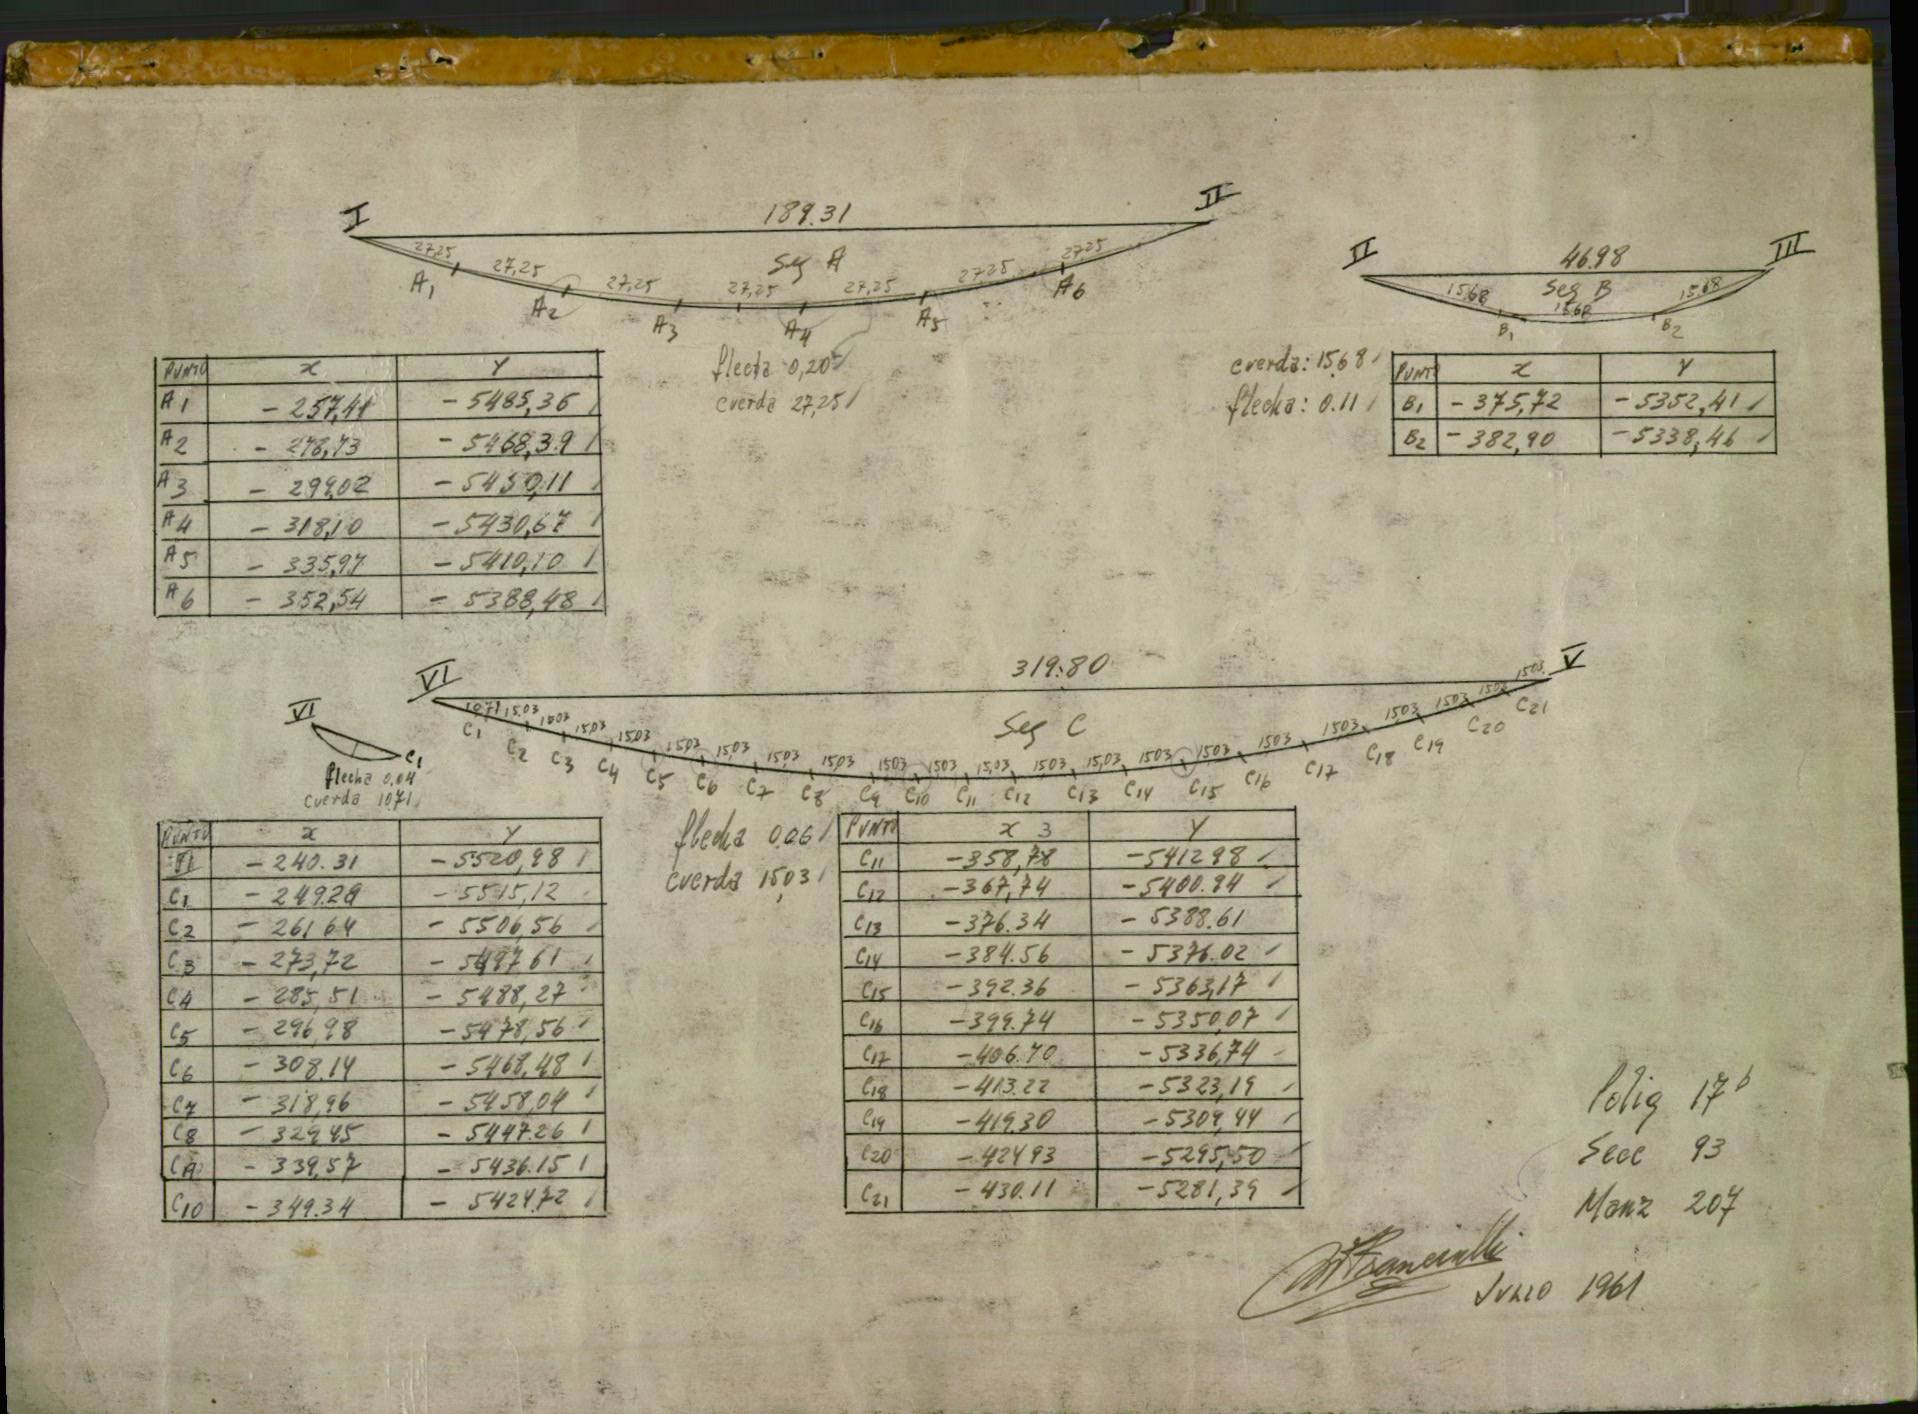 I 189.31 II
27,25 27,25 27,25 27,25 27,25 27,25 27,25
Seg A
A1 A2 A3 A4 A5 A6
flecha 0,20
cuerda 27,25
PUNTO x Y
A1 - 257,41 - 5485,36
A2 - 278,73 - 5468,39
A3 - 299,02 - 5450,11
A4 - 318,10 - 5430,67
A5 - 335,97 - 5410,10
A6 - 352,54 - 5388,48
II 46.98 III
15.68 Seg B 15.68
15.68
B1 B2
cuerda: 15.68
flecha: 0.11
PUNTO x Y
B1 - 375,72 - 5352,41
B2 - 382,90 - 5338,46
VI 319.80 V
10.71 15.03 15.03 15.03 15.03 15.03 15.03 15.03 15.03 15.03 15.03 15.03 15.03 15.03 15.03 15.03 15.03 15.03 15.03 15.03 15.03 15.03
Seg C
C1 C2 C3 C4 C5 C6 C7 C8 C9 C10 C11 C12 C13 C14 C15 C16 C17 C18 C19 C20 C21
VI
C1
flecha 0.04
cuerda 10.71
flecha 0.06
cuerda 15,03
PUNTO x Y
VI - 240.31 - 5520,98
C1 - 249.28 - 5515,12
C2 - 261 64 - 5506,56
C3 - 273,72 - 5497.61
C4 - 285,51 - 5488,27
C5 - 296,98 - 5478,56
C6 - 308.14 - 5468,48
C7 - 318,96 - 5458,04
C8 - 329,45 - 5447.26
C9 - 339,57 - 5436.15
C10 - 349.34 - 5424.72
PUNTO x 3 Y
C11 -358,78 -5412 98
C12 -367,74 -5400.94
C13 -376.34 - 5388.61
C14 -384.56 - 5376.02
C15 -392.36 - 5363,17
C16 -399.74 - 5350,07
C17 -406.70 - 5336,74
C18 -413.22 -5323,19
C19 -419.30 -5309,44
C20 -424 93 -5295,50
C21 - 430.11 -5281,39
Polig 17 b
Secc 93
Manz 207
JULIO 1961